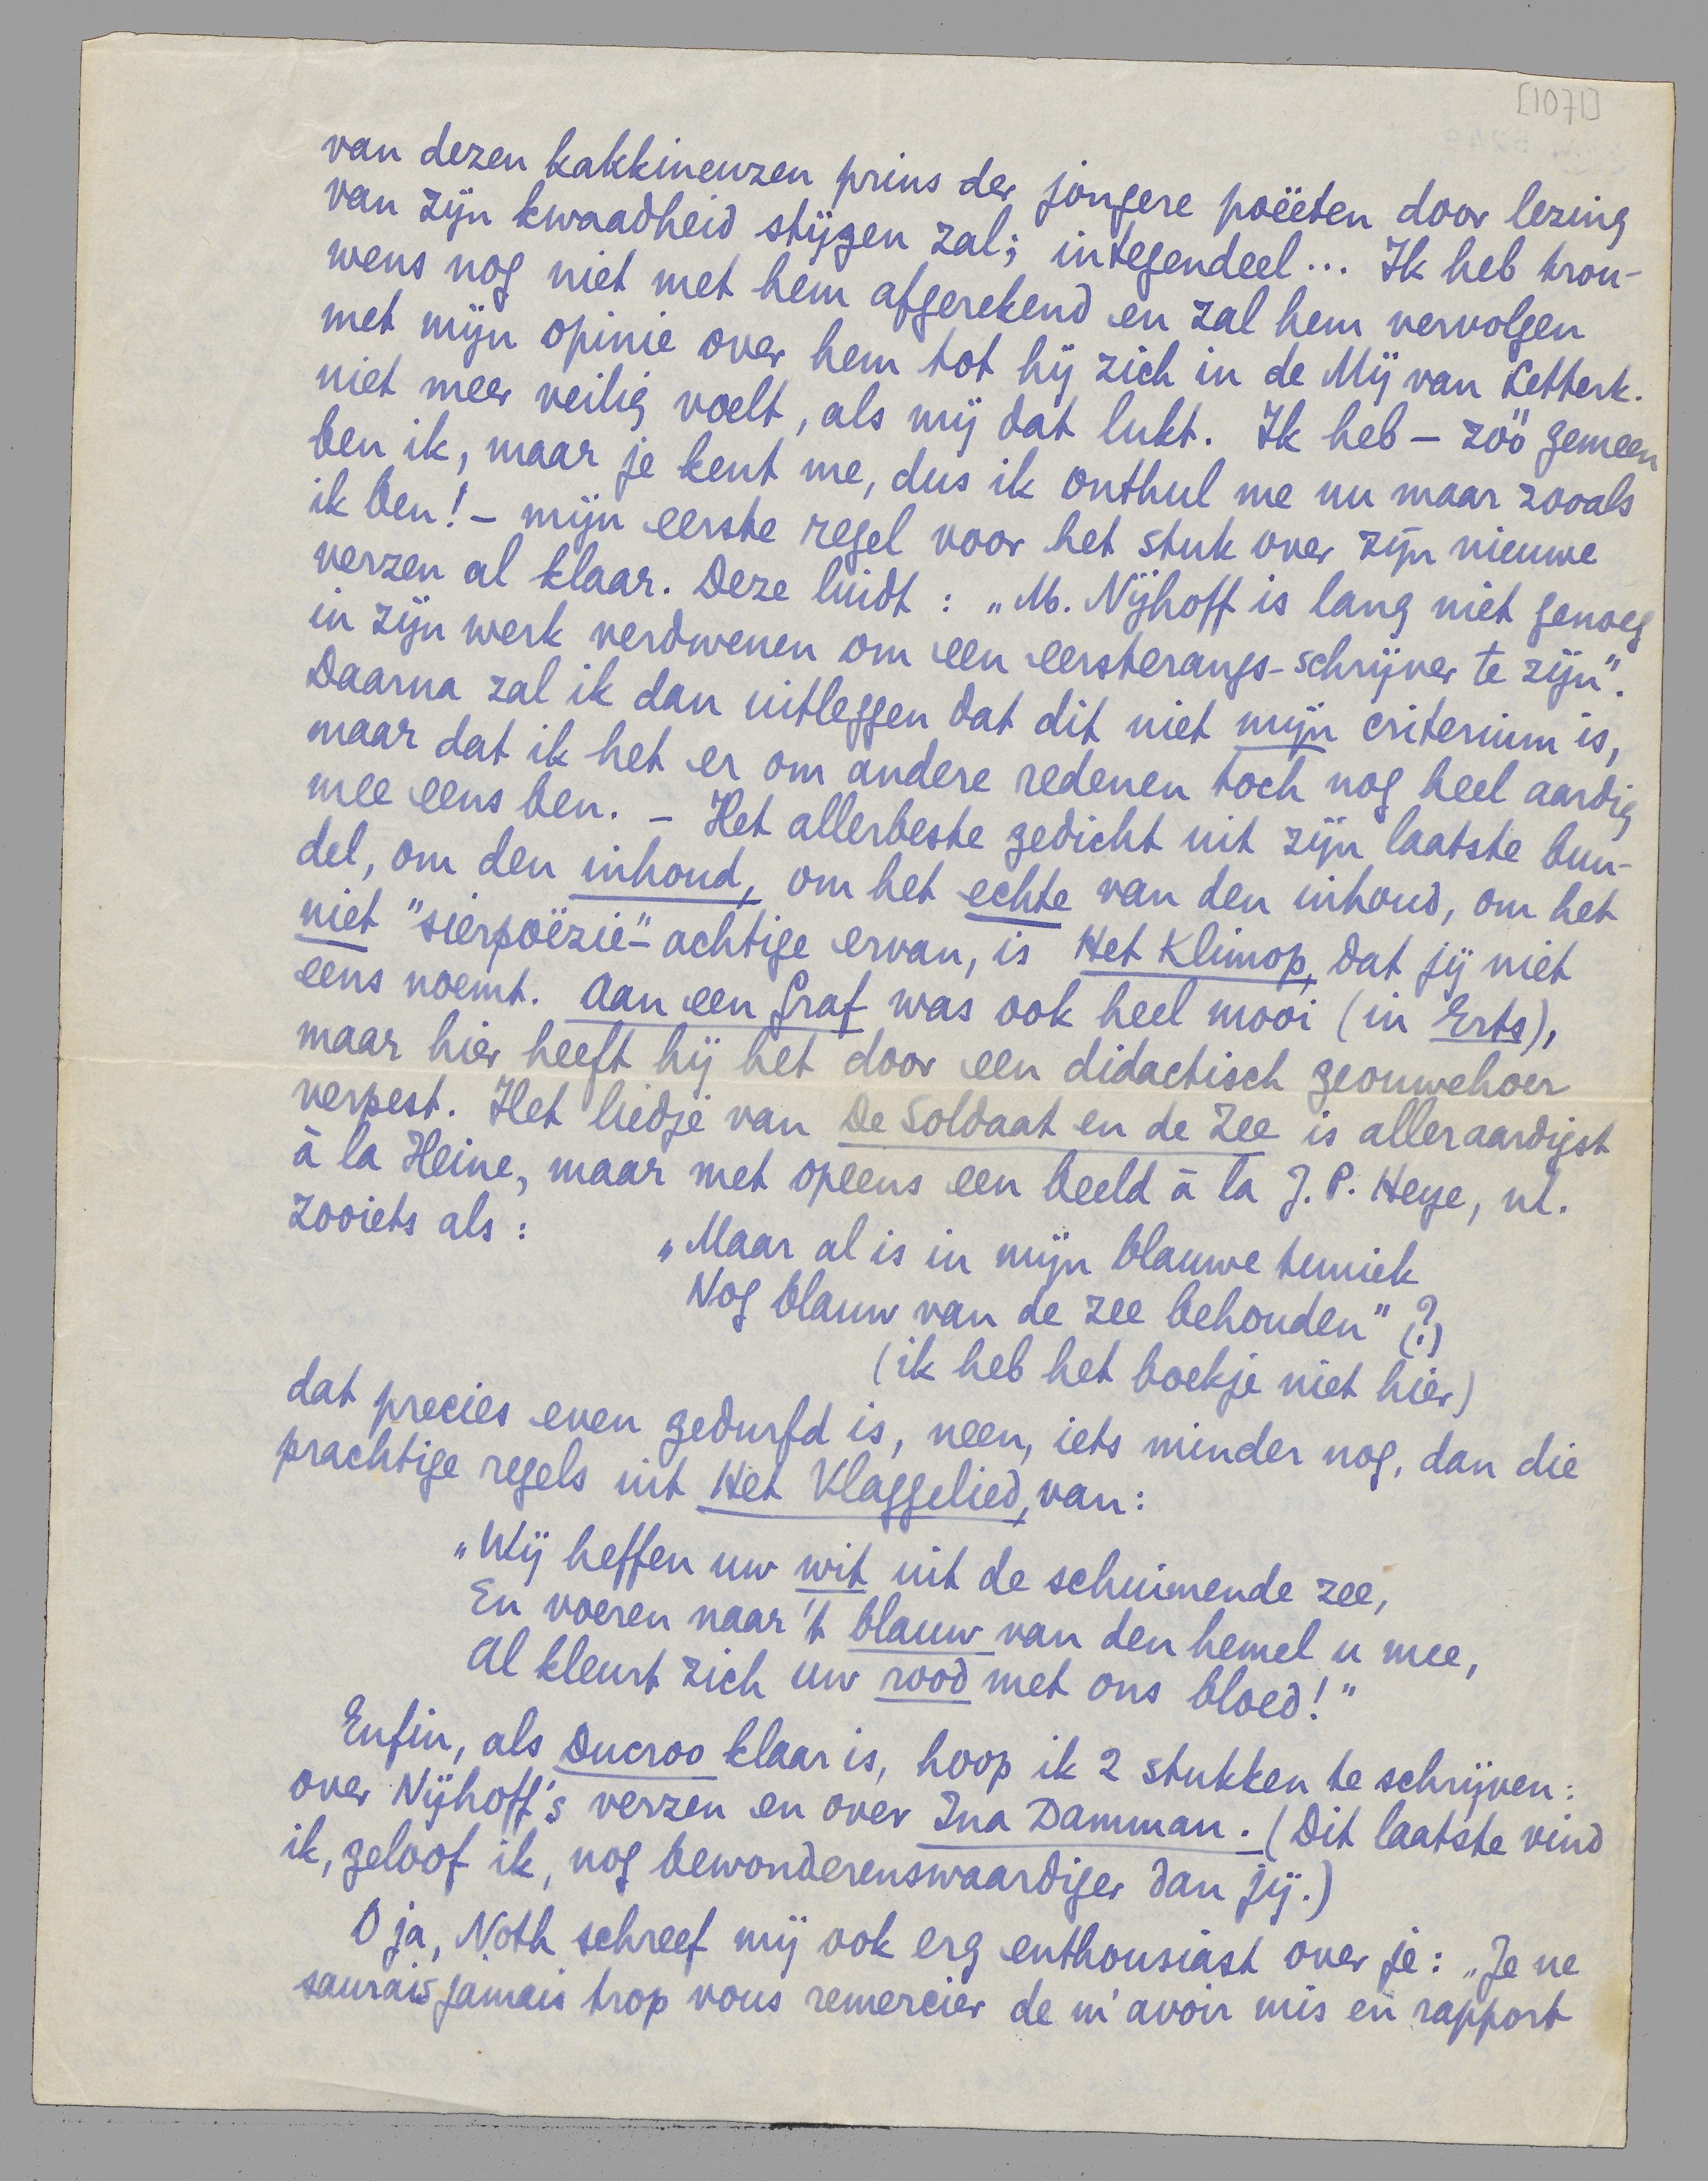 [1071]
van dezen kakkineuzen prins der jongere poëeten door lezing
van zijn kwaadheid stijgen zal; integendeel... Ik heb trou-
wens nog niet met hem afgerekend en zal hem vervolgen
met mijn opinie over hem tot hij zich in de Mij van Letterk.
niet meer veilig voelt, als mij dat lukt. Ik heb – zóó gemeen
ben ik, maar je kent me, dus ik onthul me nu maar zooals
ik ben! – mijn eerste regel voor het stuk over zijn nieuwe
verzen al klaar. Deze luidt: „M. Nijhoff is lang niet genoeg
in zijn werk verdwenen om een eersterangs-schrijver te zijn”.
Daarna zal ik dan uitleggen dat dit niet mijn criterium is,
maar dat ik het er om andere redenen toch nog heel aardig
mee eens ben. – Het allerbeste gedicht uit zijn laatste bun-
del, om den inhoud, om het echte van den inhoud, om het
niet "sierpoëzie"-achtige ervan, is Het Klimop, dat jij niet
eens noemt. Aan een Graf was ook heel mooi (in Erts),
maar hier heeft hij het door een didactisch geouwehoer
verpest. Het liedje van De Soldaat en de Zee is alleraardigst
à la Heine, maar met opeens een beeld à la J.P. Heye, nl.
zooiets als:
„Maar al is in mijn blauwe tuniek
Nog blauw van de zee behouden” (?)
(ik heb het boekje niet hier)
dat precies even gedurfd is, neen, iets minder nog, dan die
prachtige regels uit Het Vlaggelied, van:
„Wij heffen uw wit uit de schuimende zee,
En voeren naar 't blauw van den hemel u mee,
Al kleurt zich uw rood met ons bloed!”
Enfin, als Ducroo klaar is, hoop ik 2 stukken te schrijven:
over Nijhoff's verzen en over Ina Damman. (Dit laatste vind
ik, geloof ik, nog bewonderenswaardiger dan jij.)
O ja, Noth schreef mij ook erg enthousiast over je: „Je ne
saurais jamais trop vous remercier de m'avoir mis en rapport